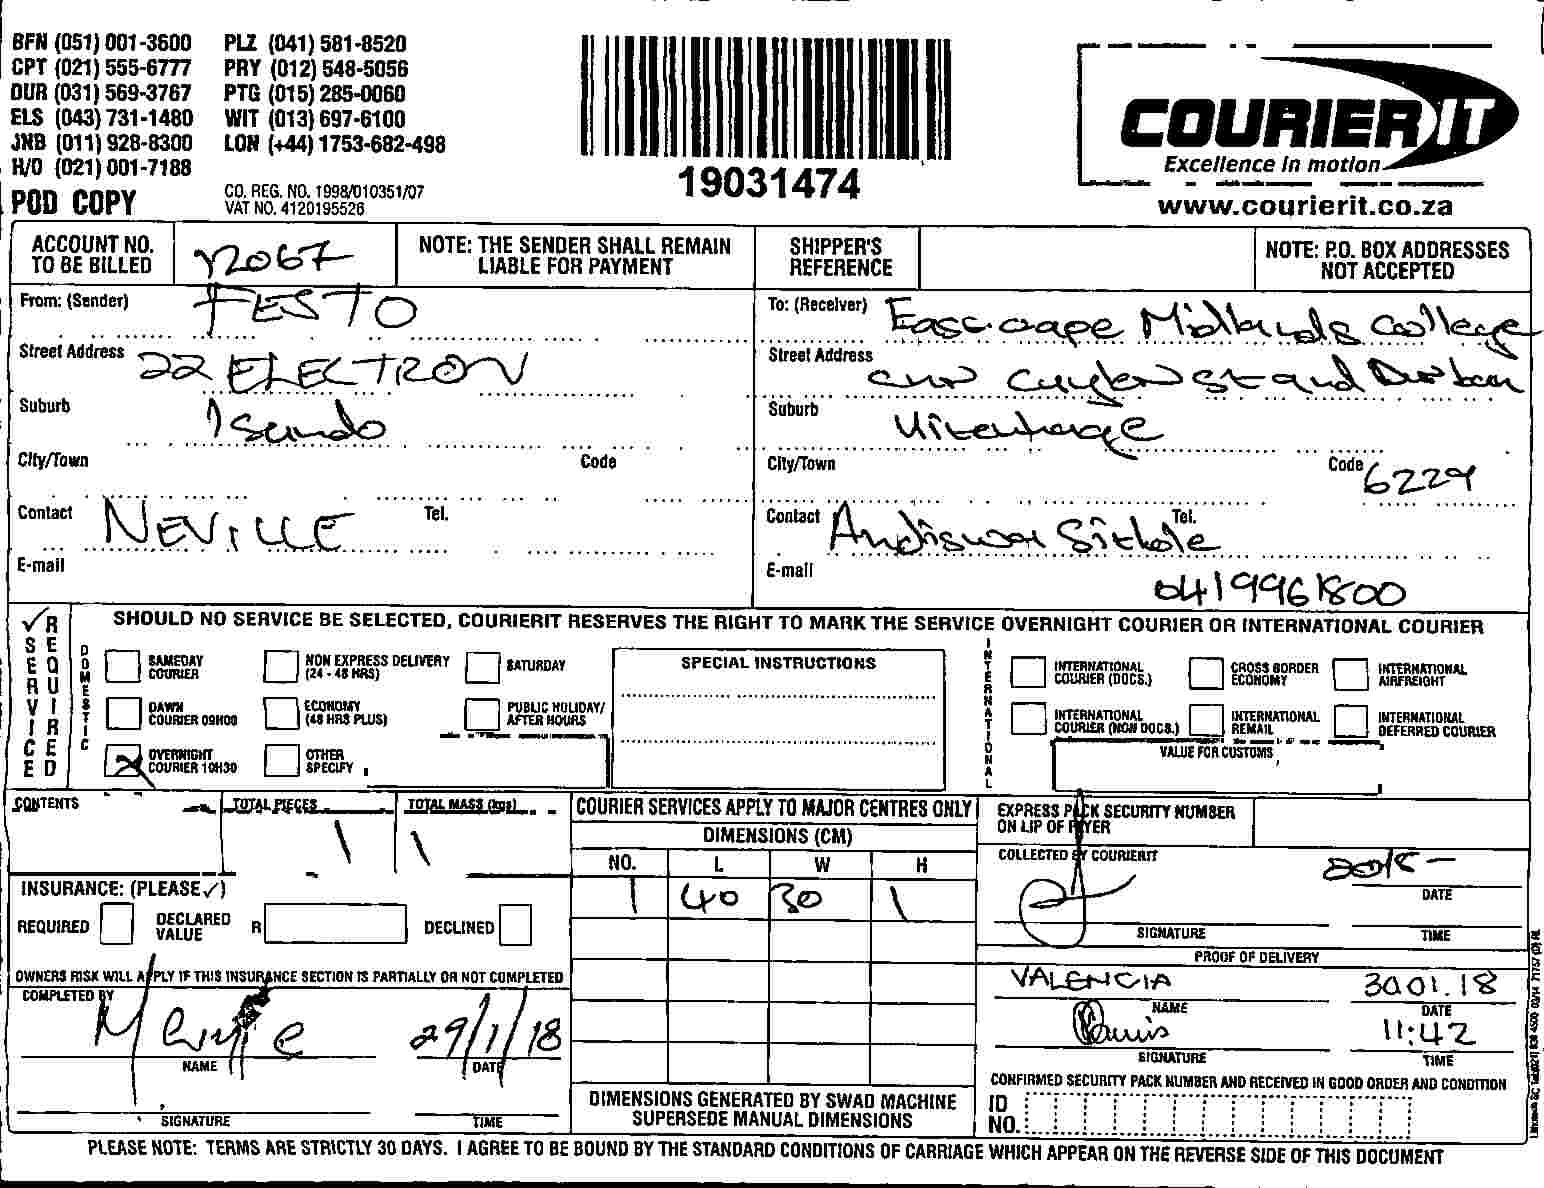 BFN (051) 001-3600 PLZ (041) 581-8520
CPT (021) 555-6777 PRY (012) 548-5056
DUR (031) 569-3767 PTG (015) 285-0060
ELS (043) 731-1480 WIT (013) 697-6100
JNB (011) 928-8300 LON (+44) 1753-682-498
H/O (021) 001-7188
POD COPY
CO. REG. NO. 1998/010351/07
VAT NO. 4120195526
19031474
COURIER IT
Excellence in motion
www.courierit.co.za
ACCOUNT NO. TO BE BILLED 12067
NOTE: THE SENDER SHALL REMAIN LIABLE FOR PAYMENT
SHIPPER'S REFERENCE
NOTE: P.O. BOX ADDRESSES NOT ACCEPTED
From: (Sender) FESTO
Street Address 22 ELECTRON
Suburb Isando
City/Town Code
Contact NEVILLE Tel.
E-mail
To: (Receiver) Eastcape Midlands College
Street Address cnr Cuyler St and Durban
Suburb Uitenhage
City/Town Code 6229
Contact Andiswa Sithole Tel.
E-mail 0419961800
✓ SERVICE REQUIRED
SHOULD NO SERVICE BE SELECTED, COURIERIT RESERVES THE RIGHT TO MARK THE SERVICE OVERNIGHT COURIER OR INTERNATIONAL COURIER
DOMESTIC
SAMEDAY COURIER
NON EXPRESS DELIVERY (24 - 48 HRS)
SATURDAY
DAWN COURIER 09H00
ECONOMY (48 HRS PLUS)
PUBLIC HOLIDAY/ AFTER HOURS
OVERNIGHT COURIER 10H30
OTHER SPECIFY
SPECIAL INSTRUCTIONS
INTERNATIONAL
INTERNATIONAL COURIER (DOCS.)
CROSS BORDER ECONOMY
INTERNATIONAL AIRFREIGHT
INTERNATIONAL COURIER (NON DOCS.)
INTERNATIONAL REMAIL
INTERNATIONAL DEFERRED COURIER
VALUE FOR CUSTOMS
CONTENTS
TOTAL PIECES 1
TOTAL MASS (kgs) 1
INSURANCE: (PLEASE ✓)
REQUIRED DECLARED VALUE R DECLINED
OWNERS RISK WILL APPLY IF THIS INSURANCE SECTION IS PARTIALLY OR NOT COMPLETED
COMPLETED BY
29/1/18
NAME DATE
SIGNATURE TIME
COURIER SERVICES APPLY TO MAJOR CENTRES ONLY
DIMENSIONS (CM)
NO. L W H
1 40 30 1
DIMENSIONS GENERATED BY SWAD MACHINE SUPERSEDE MANUAL DIMENSIONS
EXPRESS PACK SECURITY NUMBER ON LIP OF FLYER
COLLECTED BY COURIERIT
DATE
SIGNATURE TIME
PROOF OF DELIVERY
VALENCIA 30.01.18
NAME DATE
11:42
SIGNATURE TIME
CONFIRMED SECURITY PACK NUMBER AND RECEIVED IN GOOD ORDER AND CONDITION
ID NO.
PLEASE NOTE: TERMS ARE STRICTLY 30 DAYS. I AGREE TO BE BOUND BY THE STANDARD CONDITIONS OF CARRIAGE WHICH APPEAR ON THE REVERSE SIDE OF THIS DOCUMENT